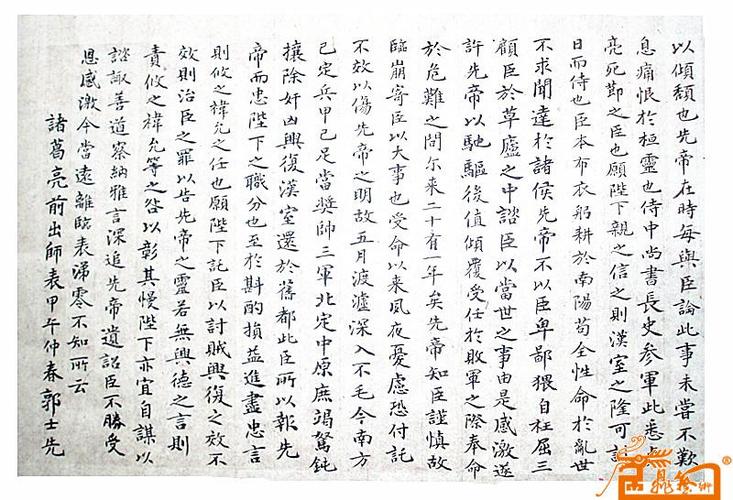 以傾頹也先帝在時每與臣論此事未嘗不歎
息痛恨於桓靈也侍中尚書長史參軍此悉
亮死節之臣也願陛下親之信之則漢室之隆可
日而侍也臣本布衣躬耕於南陽苟全性命於亂世
不求聞達於諸侯先帝不以臣卑鄙猥自枉屈三
顧臣於草廬之中諮臣以當世之事由是感激遂
許先帝以馳驅後值傾覆受任於敗軍之際奉命
於危難之間尓来二十有一年矣先帝知臣謹慎故
臨崩寄臣以大事也受命以来夙夜憂慮恐付託
不效以傷先帝之明故五月渡瀘深入不毛今南方
已定兵甲已足當奬帥三軍北定中原庶竭駑鈍
攘除奸凶興復漢室還於舊都此臣所以報先
帝而忠陛下之職分也至於斟酌損益進盡忠言
則攸之禕允之任也願陛下託臣以討賊興復之效不
效則治臣之罪以告先帝之靈若無興德之言則
責攸之禕允等之咎以彰其慢陛下亦宜自謀以
諮諏善道察納雅言深追先帝遺詔臣不勝受
恩感激今當遠離臨表涕零不知所云
諸葛亮前出師表甲午仲春郭士先